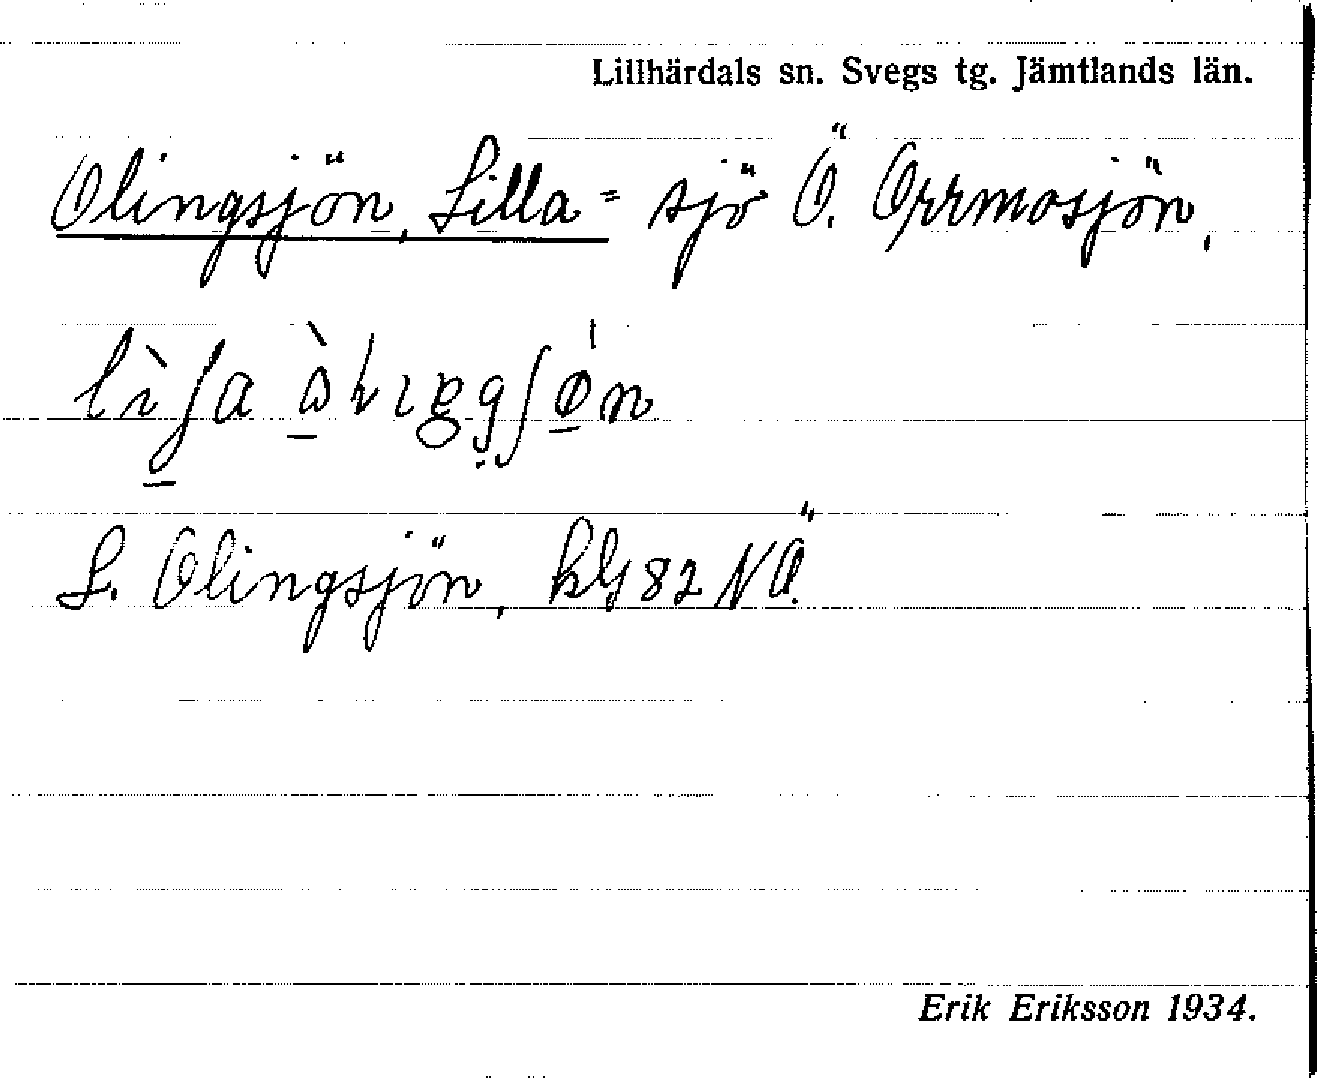 Lillhärdals sn. Svegs tg. Jämtlands län.
Olingsjön, Lilla = sjö Ö. Orrmosjön,
L. Olingsjön, kbl 82 NÖ.
Erik Eriksson 1934.